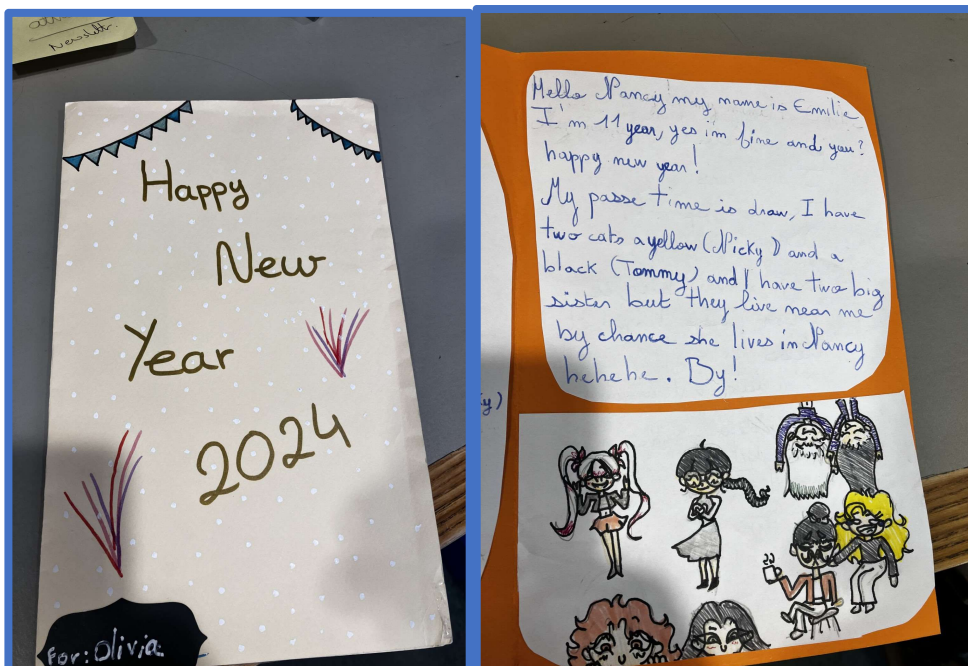 Newslett.
Happy
New
Year
2024
For: Olivia
Hello Nancy my name is Emilie
I'm 11 year, yes im fine and you?
happy new year!
My passe time is draw, I have
two cats a yellow (Nicky) and a
black (Tommy) and I have two big
sister but they live near me
by chance she lives in Nancy
hehehe. By!
y)